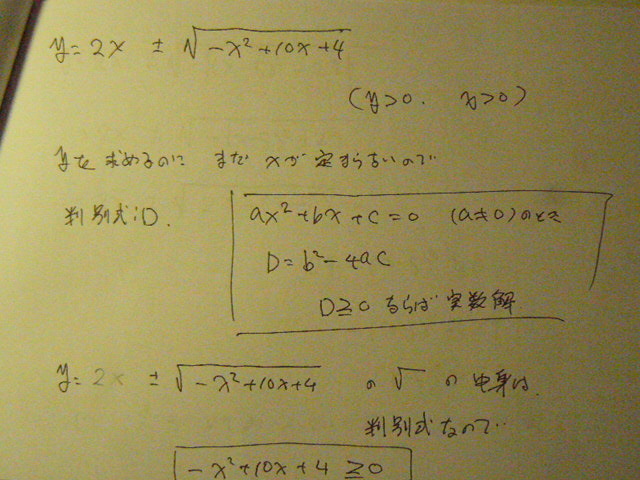 y=2x ± √-x²+10x+4
(y>0. x>0)
yを求めるのに まだ xが定まらないので
判別式:D.
ax²+bx+c=0 (a≠0)のとき
D=b²-4ac
D≧0 ならば 実数解.
y=2x ±√-x²+10x+4 の √ の中身は.
判別式なので‥
-x²+10x+4 ≧0